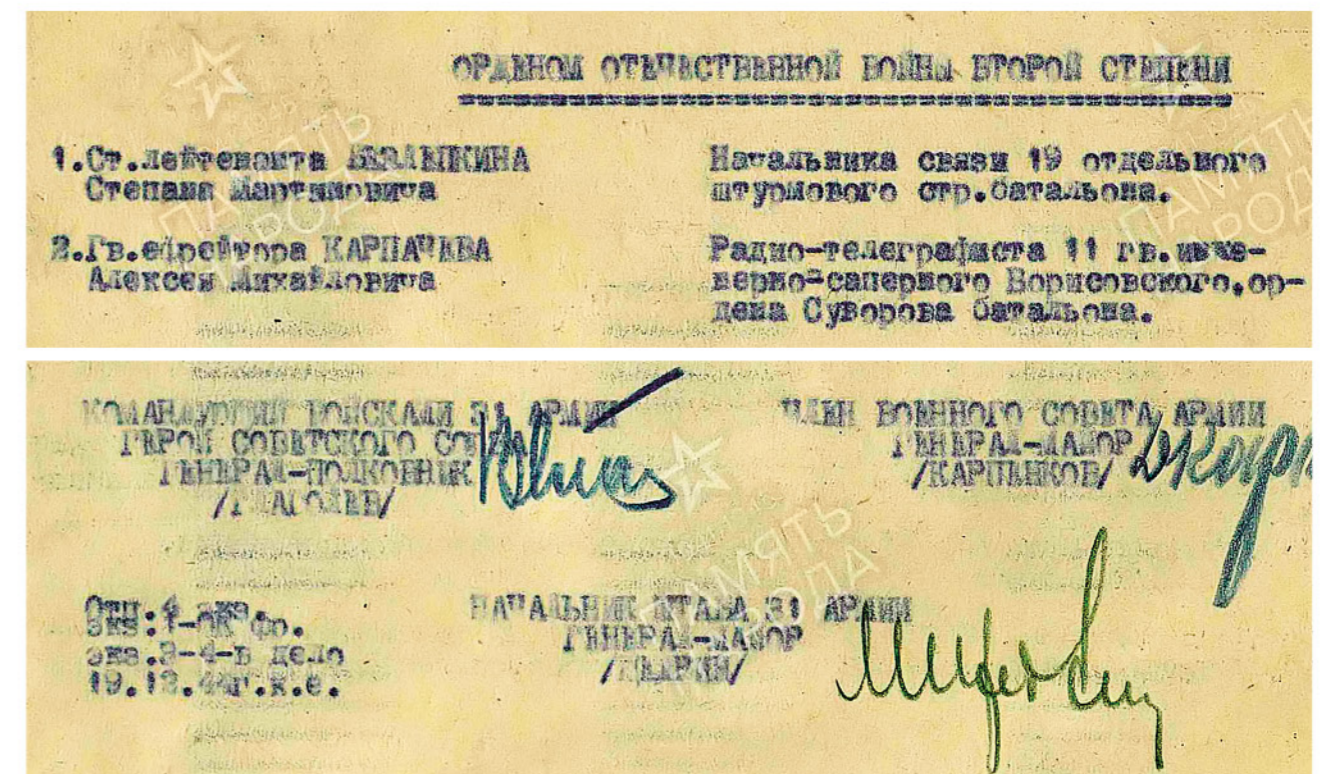 ОРДЕНОМ ОТЕЧЕСТВЕННОЙ ВОЙНЫ ВТОРОЙ СТЕПЕНИ
1.Ст.лейтенанта
Степана Мартыновича
Начальника связи 19 отдельного
штурмового стр.батальона.
2.Гв.ефрейтора КАРПАЧЕВА
Алексея Михайловича
Радио-телеграфиста 11 гв.инже-
нерно-саперного Борисовского,ор-
дена Суворова батальона.
КОМАНДУЮЩИЙ ВОЙСКАМИ 31 АРМИИ
ГЕРОЙ СОВЕТСКОГО СОЮЗА
ГЕНЕРАЛ-ПОЛКОВНИК
/ГЛАГОЛЕВ/
ЧЛЕН ВОЕННОГО СОВЕТА АРМИИ
ГЕНЕРАЛ-МАЙОР
/КАРПЕНКОВ/
Отп:4 экз.
экз.3-4-в дело
19.12.44г.к.е.
НАЧАЛЬНИК ШТАБА 31 АРМИИ
ГЕНЕРАЛ-МАЙОР
ПАМЯТЬ
НАРОДА